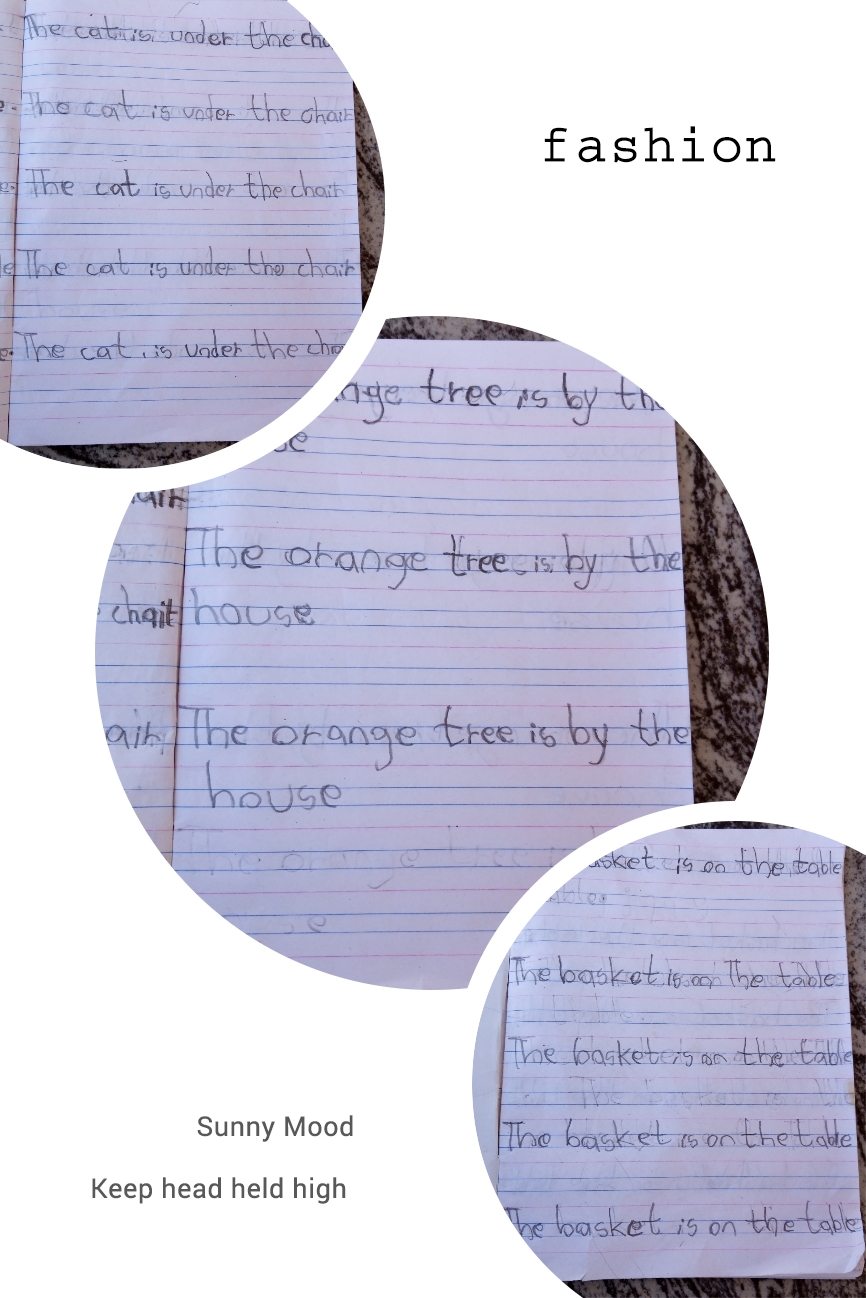 The cat is under the
fashion
The cat is under the chair
The cat is under the chair
The cat is under the chair
The cat is under the
tree is by
The orange tree is by the
chair house
The orange tree is by the
house
The orange tree
is on the table
The basket is on The table
The basket is on the table
The basket is on the table
The basket is on the table
Sunny Mood
Keep head held high